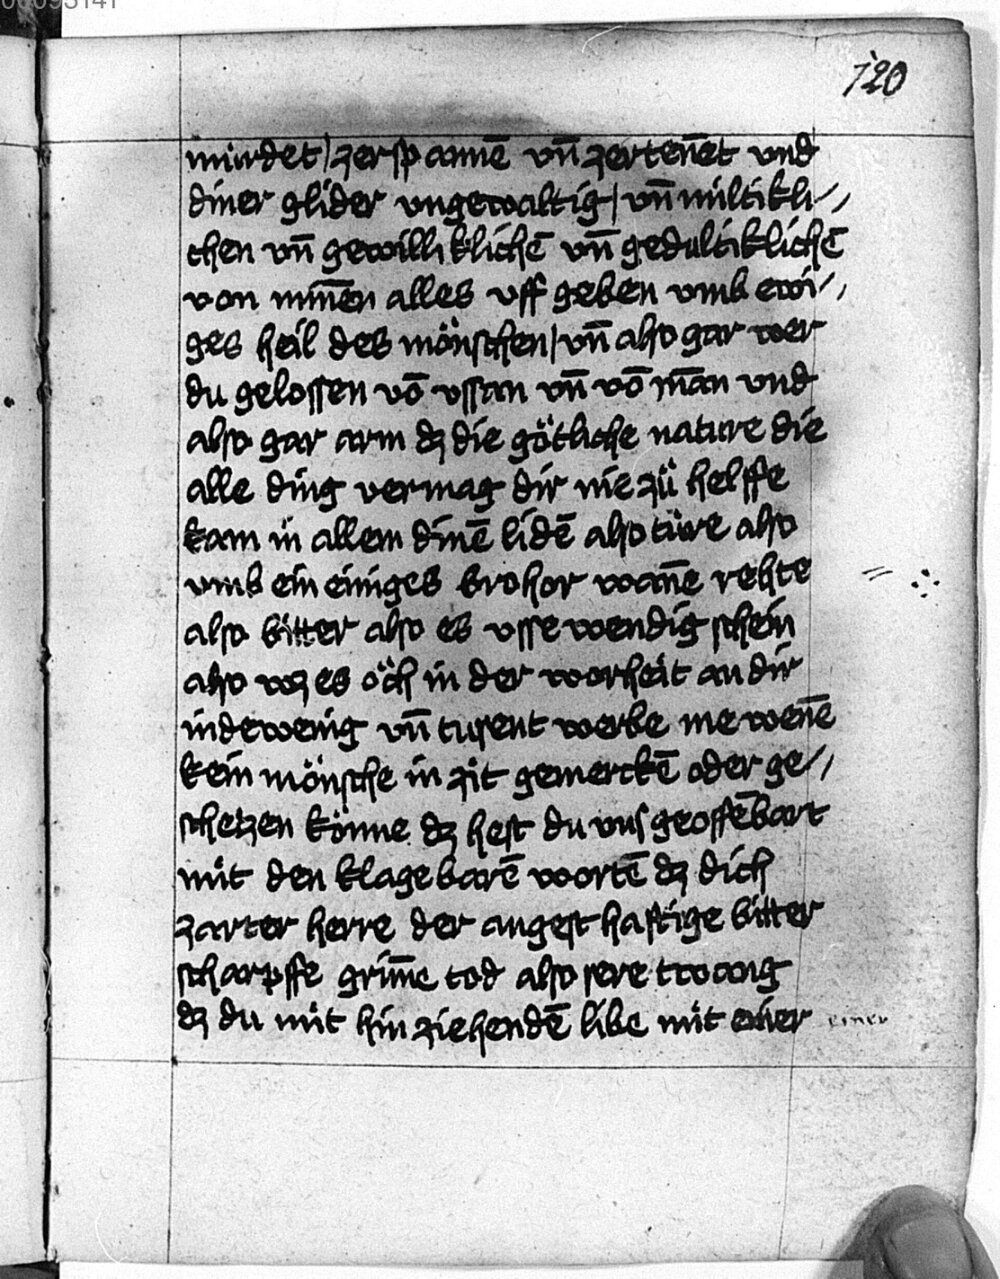 120
mundet / zerspannē vn̄ zerten̄et vnd
diner glider vngewaltig / vn̄ miltikli//
chen vn̄ gewilliklichē vn̄ gedultiklichē
von min̄en alles vff geben vmb ewi//
ges heil des mönschen / vn̄ also gar wer
du gelossen vō vssan vn̄ vō īnan vnd
also gar arm dz die götliche nature die
alle ding vermag dir nie zů helffe
kam in allem dinē lidē also türe also
vmb ein einiges brohor wan̄e rehte
also bitter also es vssewendig schein
also wz es öch in der worheit an dir
indewenig vn̄ tusent werbe me wen̄e
kein mönsche in zit gemerckē oder ge//
schetzen könne dz hest du vns geoffēbart
mit den klagebarē wortē dz dich
zarter herre der angesthaftige bitter
scharpffe grim̄e tod also sere twang
dz du mit hin ziehendē libe mit einer einer